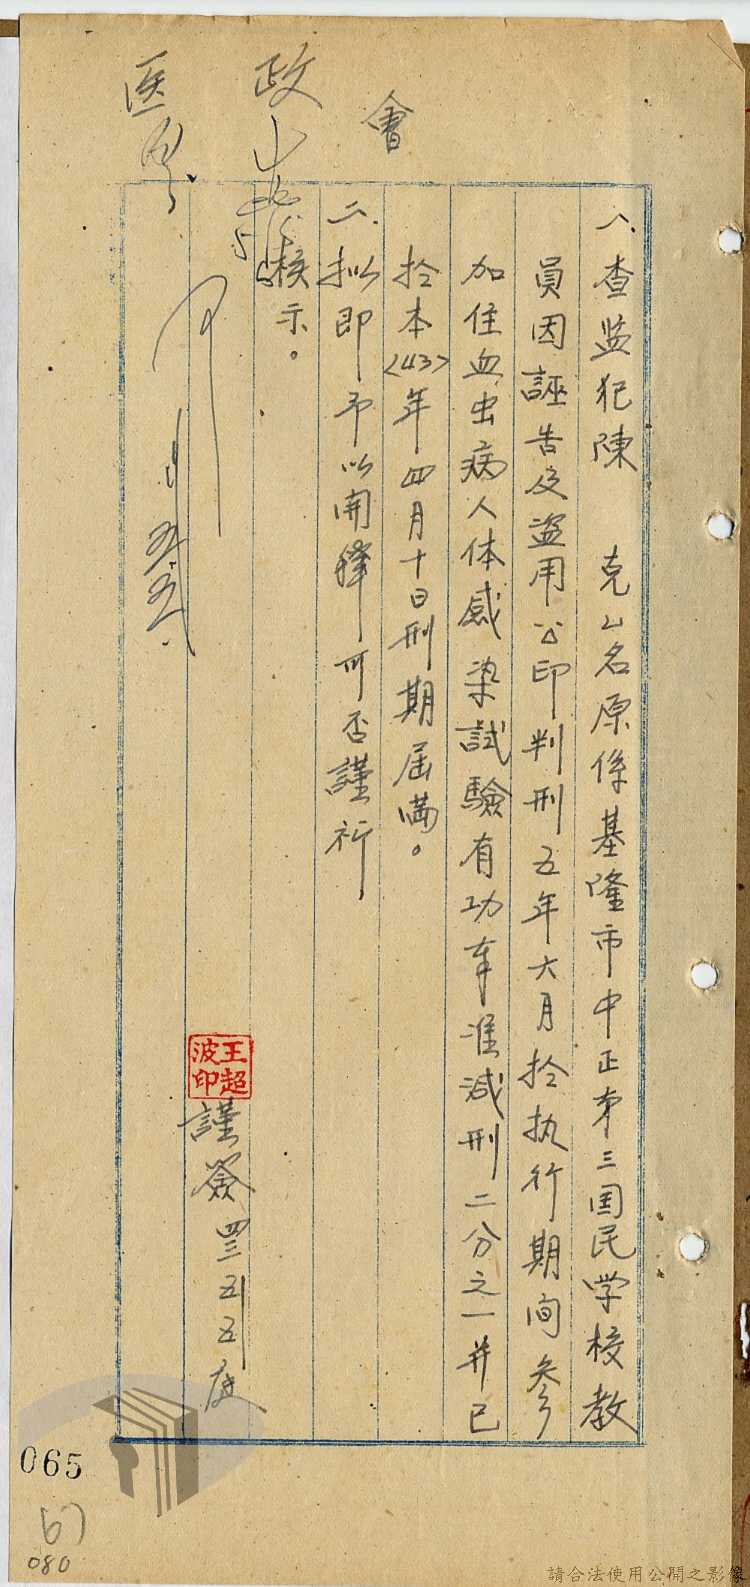 會
政
医
一、查监犯陳 克ム名原係基隆市中正苐三国民学校教
員因誣告及盗用公印判刑五年六月於执行期间參
加住血虫病人体感染試驗有功奉准減刑二分之一并已
於本〈43〉年四月十日刑期屆满。
二、拟即予以開釋可否謹祈
核示。
王超
波印
謹簽 四三 五 五
065
67
080
請合法使用公開之影像